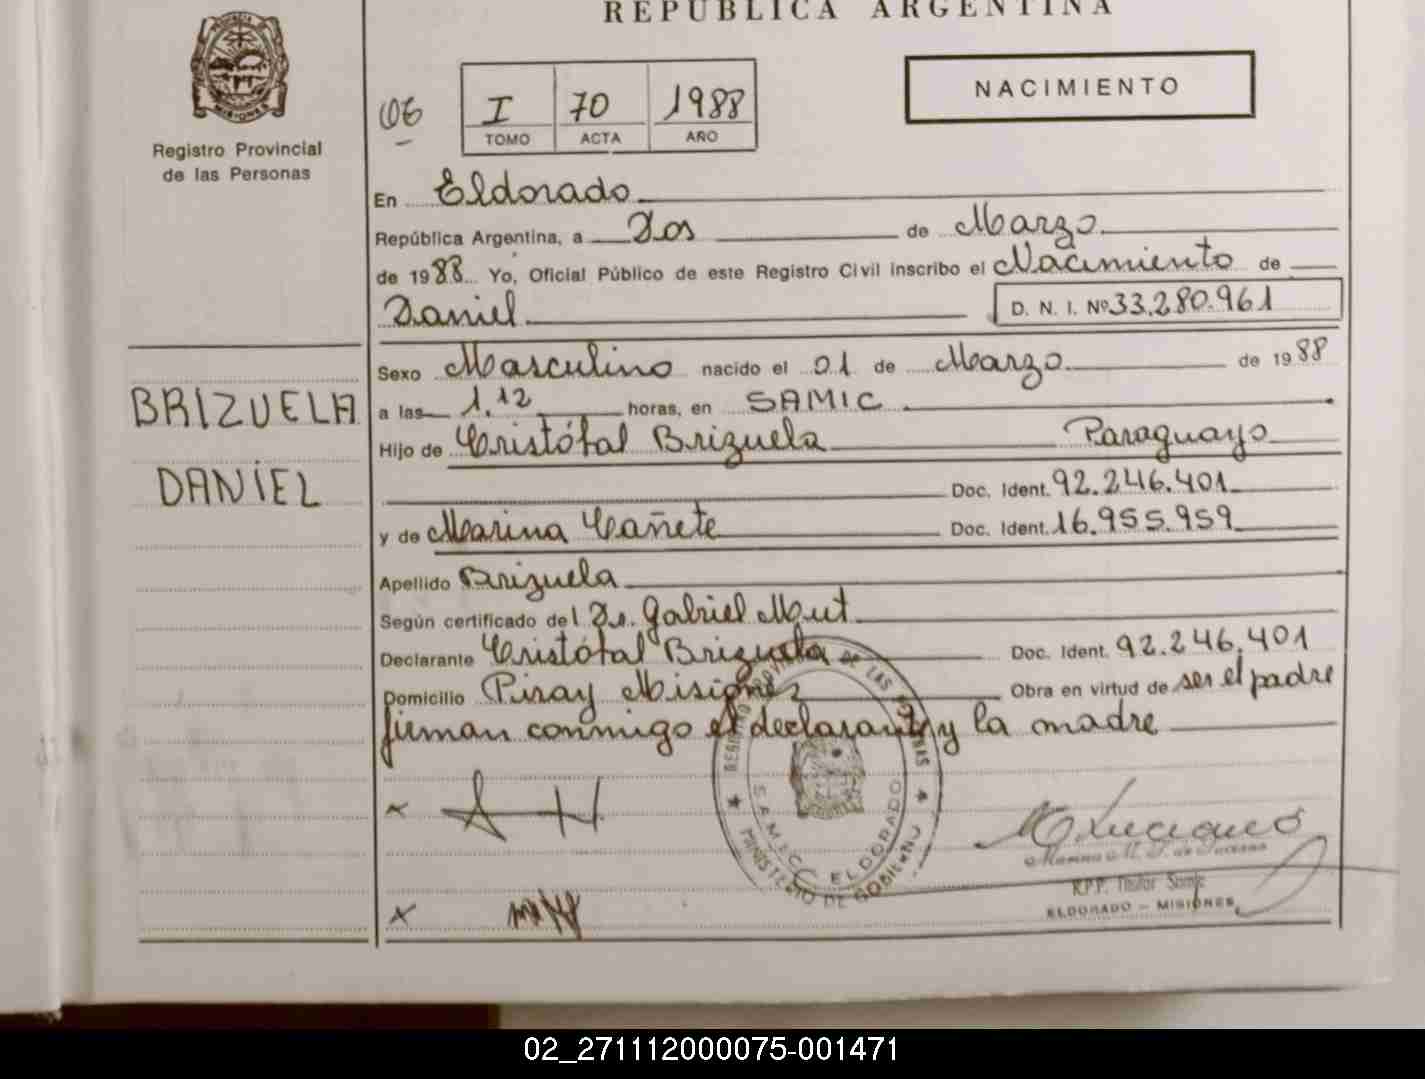 REPUBLICA ARGENTINA
MISIONES
Registro Provincial
de las Personas
I 70 1988
TOMO ACTA AÑO
NACIMIENTO
En Eldorado
República Argentina, a Dos de Marzo
de 1988 Yo, Oficial Público de este Registro Civil inscribo el Nacimiento de
Daniel D. N. I. Nº 33.280.961
Sexo Masculino nacido el 01 de Marzo de 1988
BRIZUELA
a las 1.12 horas, en SAMIC
Hijo de Cristóbal Brizuela Paraguayo
DANIEL
Doc. Ident. 92.246.401
y de Marina Cañete Doc. Ident. 16.955.959
Apellido Brizuela
Según certificado del Dr. Gabriel Mut
Declarante Cristóbal Brizuela Doc. Ident. 92.246.401
Domicilio Piray Misiones Obra en virtud de ser el padre
firman conmigo el declarante y la madre
REGISTRO PROVINCIAL DE LAS PERSONAS
SAMIC ELDORADO
MINISTERIO DE GOBIERNO
R.P.P. Titular Samic
ELDORADO - MISIONES
02_271112000075-001471